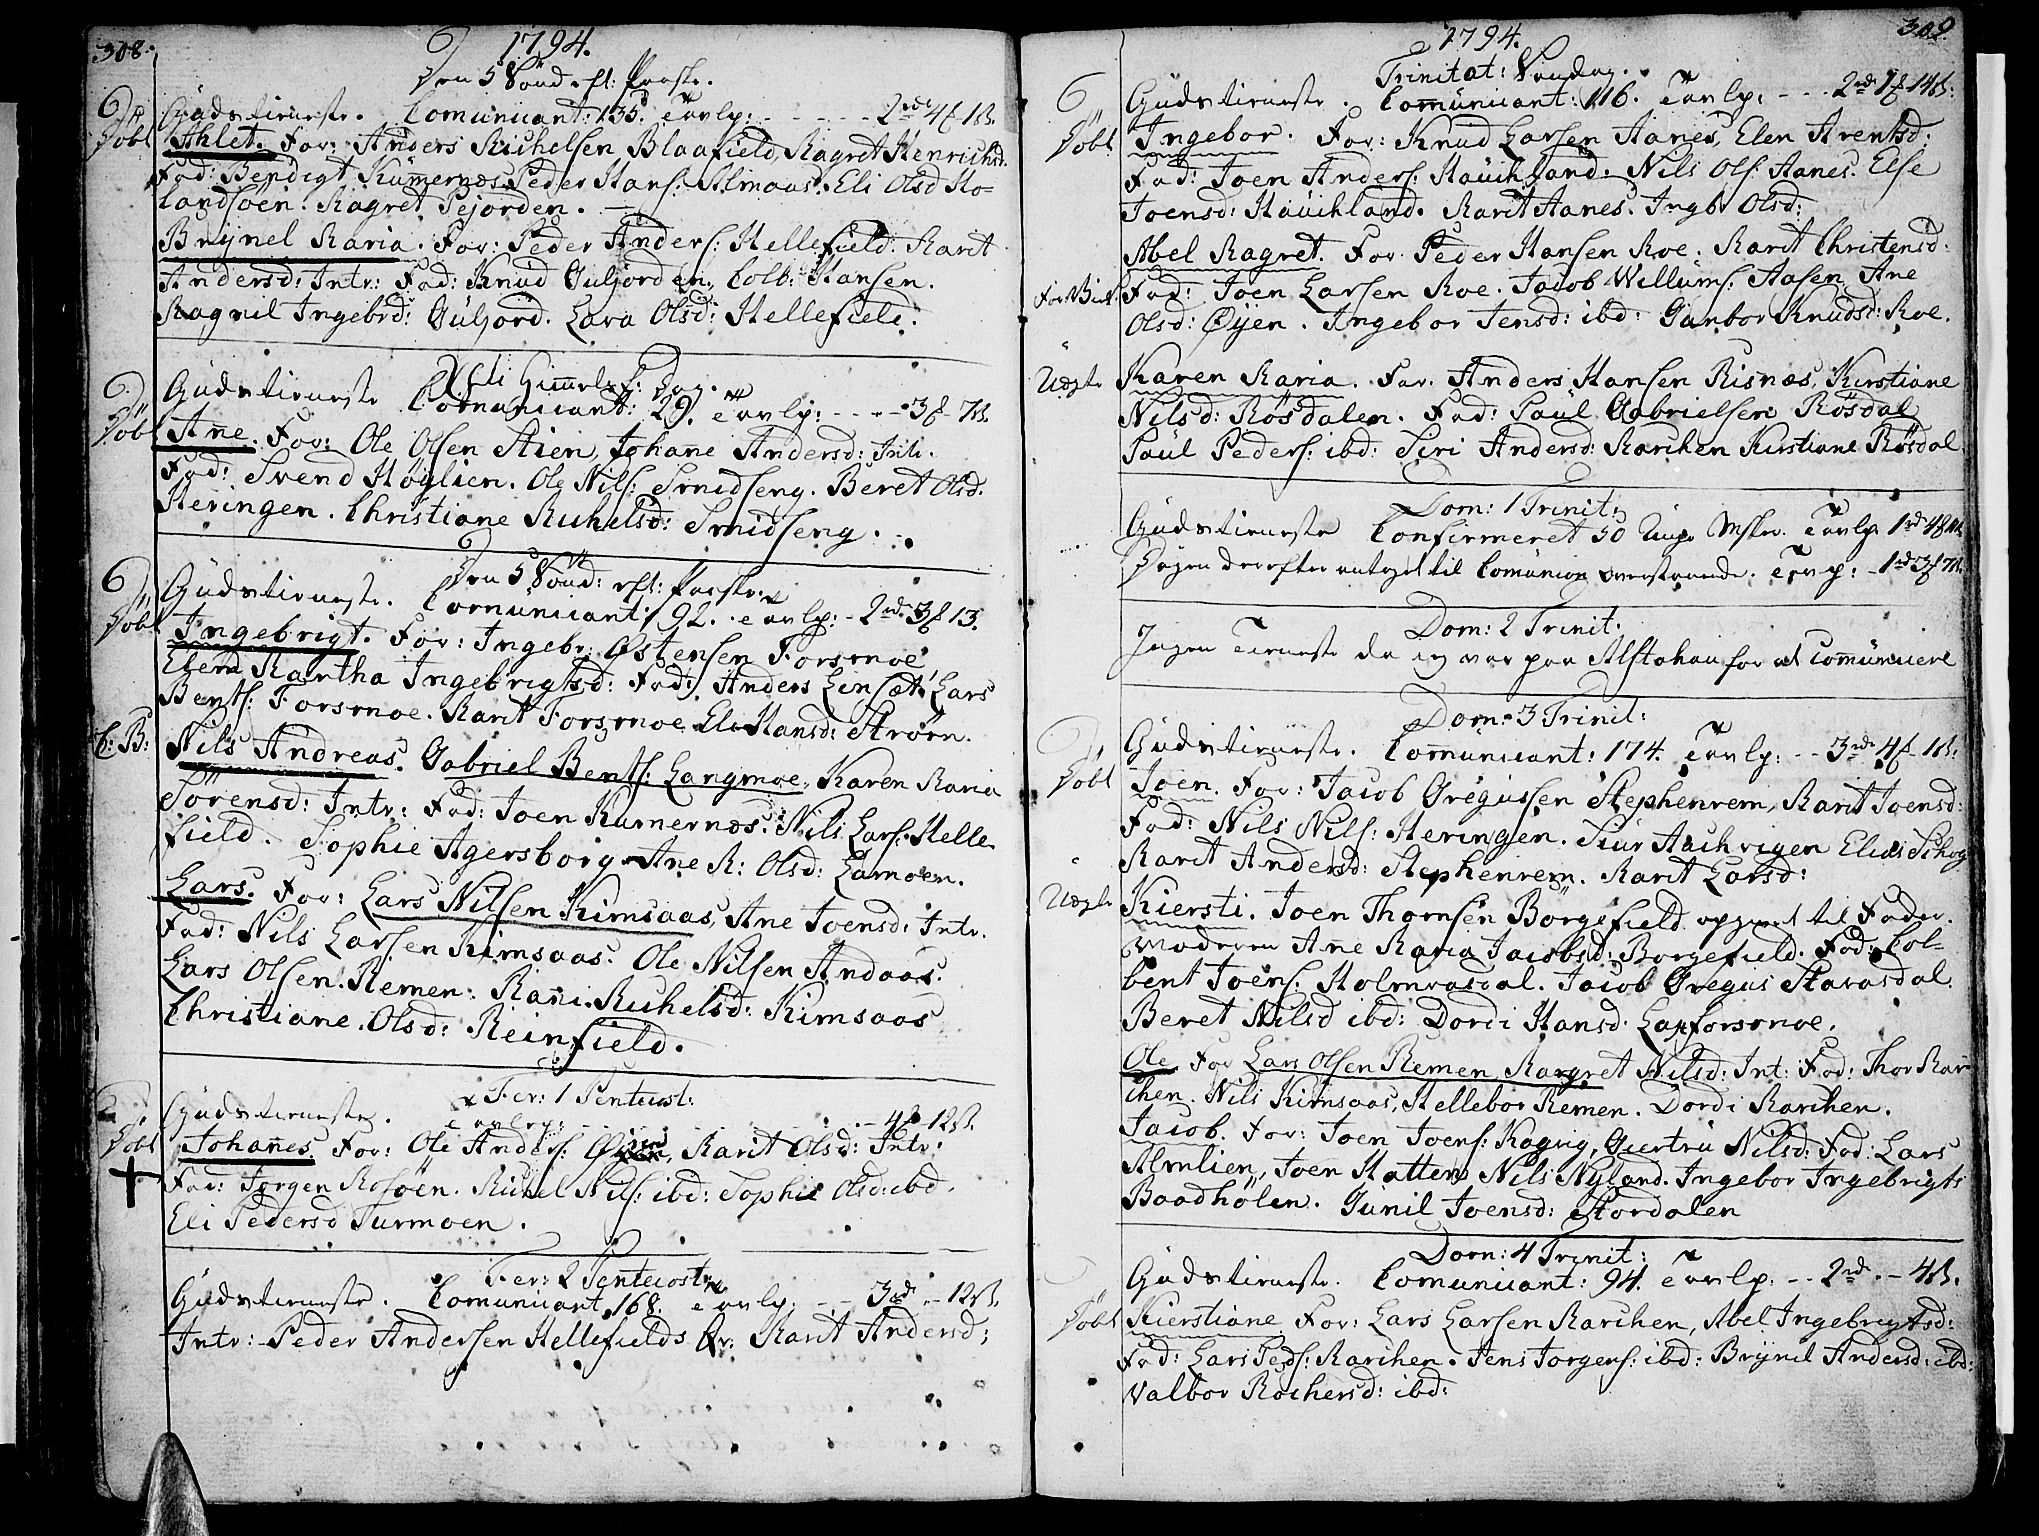 308.
1794.
Den 5 Sönd. eft: Paaske.
Gudstieneste. Comunicant: 135. Tavlp: - - - - 2rd 4f 1ß.
Döbt Ahlet. For: Anders Michelsen Blaafield, Magret Henrichsd:
Fad: Bendigt Kummernæs. Peder Hans: Almaas. Eli Olsd Ho-
landsöen. Magret Pejorden. -
Brynel Maria. For: Peder Anders: Hellefield. Marit
Andersd: Intr: Fad: Knud Guljorden, Colb: Hansen.
Magnil Ingebrd: Guljord. Lava Olsd: Hellefield.
Xsti Himmelf: Dag.
Gudstieneste Comunicant: 29. Tavlp: - - - 3f 7ß.
Döbt Ane. For: Ole Olsen Stien, Johane Andersd: Intr.
Fad: Svend Höglien. Ole Nils: Smidseng. Beret Olsd.
Heringen. Christiane Michelsd: Smidseng.
Den 5 Sönd: eft: Paaske.
Gudstieneste. Comunicant: 92. Tavlp: - 2rd 3f 13.
Döbt Ingebrigt. For: Ingebr: Östensen Forsmoe,
Elena Martha Ingebrigtsd: Fad: Anders Linsæt, Lars
Bents: Forsmoe. Marit Forsmoe Eli Hansd: Ström.
C: B: Nils Andreas. Gabriel Bents: Langmoe, Karen Maria
Sörensd: Intr: Fad: Joen Kumernæs. Nils Lars: Helle-
field. Sophie Agersborg Ane M: Olsd: Lamoen.
Lars. For: Lars Nilsen Kimsaas, Ane Joensd: Intr.
Fad: Nils Larsen Kimsaas. Ole Nilsen Andaas.
Lars Olsen Remen. Mani. Michelsd: Kimsaas
Christiane Olsd: Reinfield.
Fer: 1 Pentecost:
Gudstieneste. Tavlp: - - - 4f 12ß.
Döbt Johanes. For: Ole Anders: Öien, Marit Olsd: Intr:
Fad: Jorgen Mosöen. Michel Nils: ibd: Sophie Olsd: ibd.
Eli Pedersd Turmoen.
Fer: 2 Pentecost:
Gudstieneste. Comunicant 168. Tavlp: - - 3rd - 12ß.
Intr: Peder Andersen Hellefields Qv: Marit Andersd:
309.
1794.
Trinitat: Söndag.
Gudstieneste. Comunicant: 116. Tavlp: - - - 2rd 1f 14ß.
Döbt Ingebor. For: Knud Larsen Aanes, Elen Arentsd:
Fad: Joen Anders: Hauchland. Nils Ols: Aanes. Else
Joensd: Hauchland. Marit Aanes. Ingb: Olsd:
Abel Magret. For: Peder Hansen Moe. Marit Christensd:
Fad: Joen Larsen Moe. Jacob Willums: Aasen Ane
Olsd: Öyen. Ingebor Jensd: ibd: Gunbor Knudsd: Moe.
Uægte Karen Maria. Far. Anders Hansen Risnæs, Kirstiane
Nilsd: Rösdalen. Fad: Paul Gabrielsen Rösdal
Paul Peders: ibd: Siri Andersd: Marchen Kirstiane Rösdal
Dom: 1 Trinit:
Gudstieneste Confirmeret 50 Unge Msker. Tavlp 1rd 4f
Dagen derefter antaget til Comunion ovenstaaende. Tavp: - 1rd 3f 7ß.
Dom: 2 Trinit:
Ingen Tieneste da ieg var paa Alstahau for at Comunicere
Dom: 3 Trinit:
Gudstieneste. Comunicant: 174. Tavlp: - - 3rd 4f 1ß.
Döbt Joen. For: Jacob Gregussen Stephenrem, Marit Joensd:
Fad: Nils Nils: Heringen. Siur Auchvigen Elias Schog
Marit Andersd: Stephenrem. Marit Larsd:
Uægte Kiersti. Joen Thomsen Borgefield opgivet til Fader.
Moderen Ane Maria Jacobsd: Borgefield. Fad: Col-
bent Joens: Holmvasdal. Jacob Gregus Stavasdal.
Beret Nilsd ibd: Dordi Hansd: Lapforsmoe.
Ole For Lars Olsen Remen, Margret Nilsd: Int: Fad: Thor Mar-
chen. Nils Kimsaas, Hellebor Remen. Dordi Marchen.
Jacob. For: Joen Joens: Kogvig, Giertru Nilsd: Fad: Lars
Almlien, Joen Hatten, Nils Nyland. Ingebor Ingebrigts
Baadhölen. Gunil Joensd: Stordalen
Dom: 4 Trinit:
Gudstieneste. Comunicant: 94. Tavlp: - - 2rd. - 4ß.
Döbt Kierstiane For: Lars Larsen Marchen, Abel Ingebrigtsd:
Fad: Lars Peds: Marchen. Jens Jorgens: ibd: Brynil Andersd: ibd:
Valbor Mochersd: ibd: